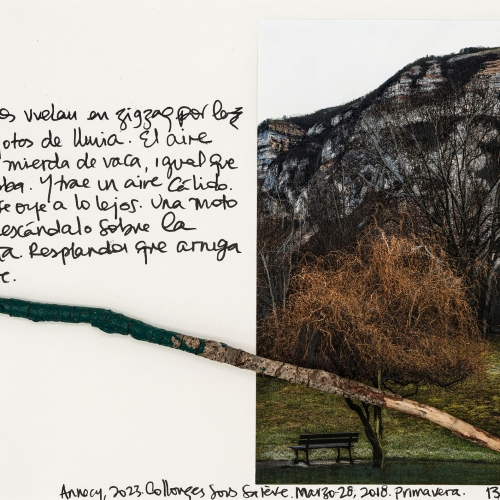 os vuelan en zigzag por las
otas de lluvia. El aire
mierda de vaca, igual que
ba. Y trae un aire cálido.
se oye a lo lejos. Una moto
escándalo sobre la
a. Resplandor que arruga
e.
Annecy, 2023. Collonges Sous Salève. Marzo-28, 2018. Primavera. 13